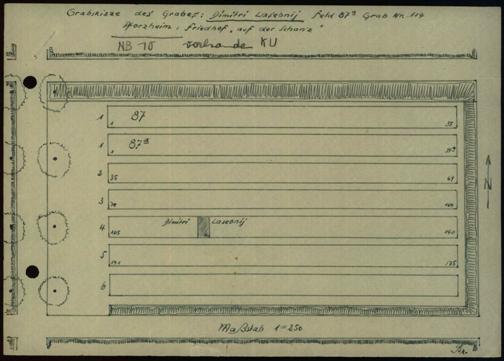 Grabskizze des Grabes: Dimitri Lasebnij Feld 87ª Grab Nr. 114
Pforzheim: Friedhof, auf der Schanz
NB 10 vorhanden KU
1 87
1 35
1 87ª
1
2
35 69
3
70 104
Dimitri Lasebnij
4
105 140
5
141 175
6
N
Maßstab 1=250